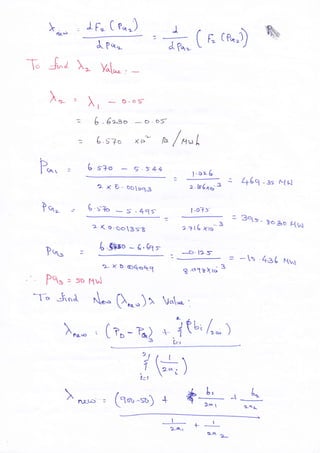 λnew = dF₂(PG₂) / dPG₂ = d / dPG₂ ( F₂ (PG₂))
To find λ₂ Value : -
λ₂ = λ₁ - 0.05
= 6.6230 - 0.05
= 6.570 Rs / MWh
PG₁ = 6.570 - 5.544 / 2 x 0.001093 = 1.026 / 2.186x10⁻³ = 469.35 MW
PG₂ = 6.570 - 5.495 / 2 x 0.001358 = 1.075 / 2.716 x10⁻³ = 395.8030 MW
PG₃ = 6.570 - 6.695 / 2 x 0.004049 = -0.125 / 8.098x10⁻³ = -15.436 MW
∴ PG₃ = 50 MW
To find New (λnew) λ Value :
λnew = (PD - PG₃) + Σ i=1 (bi/2ai) / Σ i=1 (1/2ai)
λnew = (900-50) + b₁/2a₁ + b₂/2a₂ / 1/2a₁ + 1/2a₂